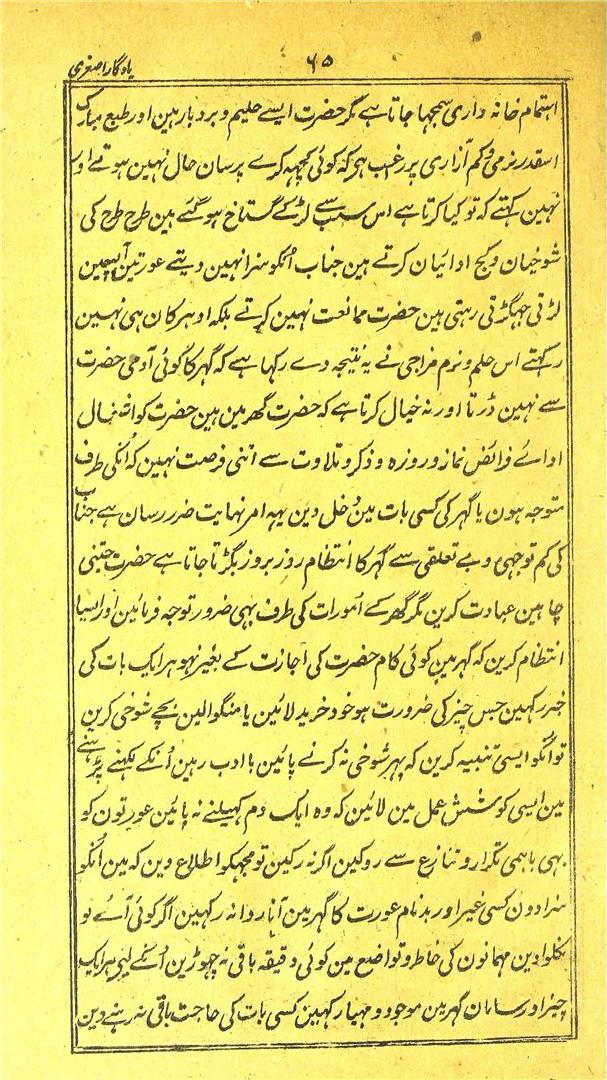 یادگار اصغری
۶۵
اہتمام خانہ داری سمجہا جاتا ہے مگر حضرت ایسے حلیم و بردبار ہین اور طبع مبارک
اسقدر نرمی و کم آزاری پر رغب ہی کہ کوئی کچہہ کرے پرسان حال نہین ہوتے اور
نہین کہتے کہ تو کیا کرتا ہے اس سبب سے لڑکے گستاخ ہو گئے ہین طرح طرح کی
شوخیان و کج ادائیان کرتے ہین جناب اُنکو سزا نہین دیتے عورتین آپسمین
لڑتی جہگڑتی رہتی ہین حضرت ممانعت نہین کرتے بلکہ اودہر کان ہی نہین
رکہتے اس حلم و نرم مزاجی نے یہ نتیجہ دے رکہا ہے کہ گہر کا کوئی آدمی حضرت
سے نہین ڈرتا اور نہ خیال کرتا ہے کہ حضرت گھر مین ہین حضرت کو اشغال
ادائے فرائض نماز و روزہ و ذکر و تلاوت سے اتنی فرصت نہین کہ اُنکی طرف
متوجہ ہون یا گہر کی کسی بات مین دخل دین یہہ امر نہایت ضرر رسان ہے جناب
کی کم توجہی و بے تعلقی سے گہر کا انتظام روز بروز بگڑتا جاتا ہے حضرت جتنی
چاہین عبادت کرین مگر گھر کے اُمورات کی طرف بہی ضرور توجہ فرمائین اور ایسا
انتظام کرین کہ گہر مین کوئی کام حضرت کی اجازت کے بغیر نہو ہر ایک بات کی
خبر رکہین جس چیز کی ضرورت ہو خود خرید لائین یا منگوا لین بچے شوخی کرین
تو اُنکو ایسی تنبیہ کرین کہ پہر شوخی نہ کرنے پائین با ادب رہین اُنکے لکہنے پڑہنے
مین ایسی کوشش عمل مین لائین کہ وہ ایک دم کہیلنے نہ پائین عورتون کو
بہی باہمی تکرار و تنازع سے روکین اگر نہ رکین تو مجہکو اطلاع دین کہ مین اُنکو
سزا دون کسی غیر اور بدنام عورت کا گہر مین آنا روا نہ رکہین اگر کوئی آئے تو
نکلوا دین مہمانون کی خاطر و تواضع مین کوئی دقیقہ باقی نہ چہوڑین اُنکے لیے ہر ایک
چیز اور سامان گہر مین موجود و مہیا رکہین کسی بات کی حاجت باقی نہ رہنے دین